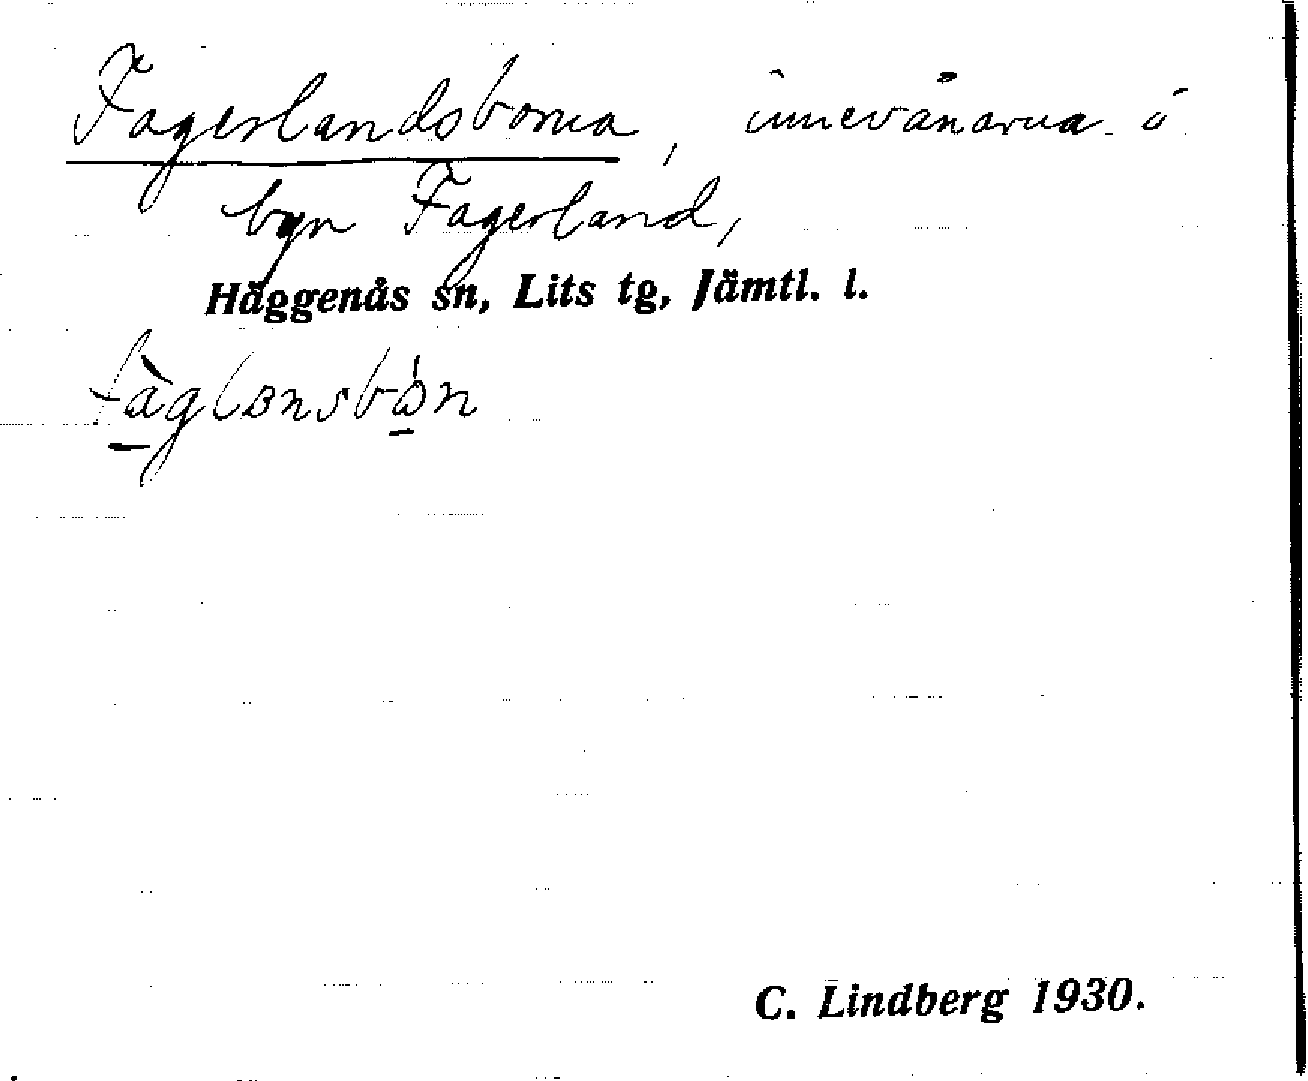 Fagerlandsborna, innevånarna i
byn Fagerland,
Häggenås sn, Lits tg, Jämtl. l.
fàglansbón
C. Lindberg 1930.